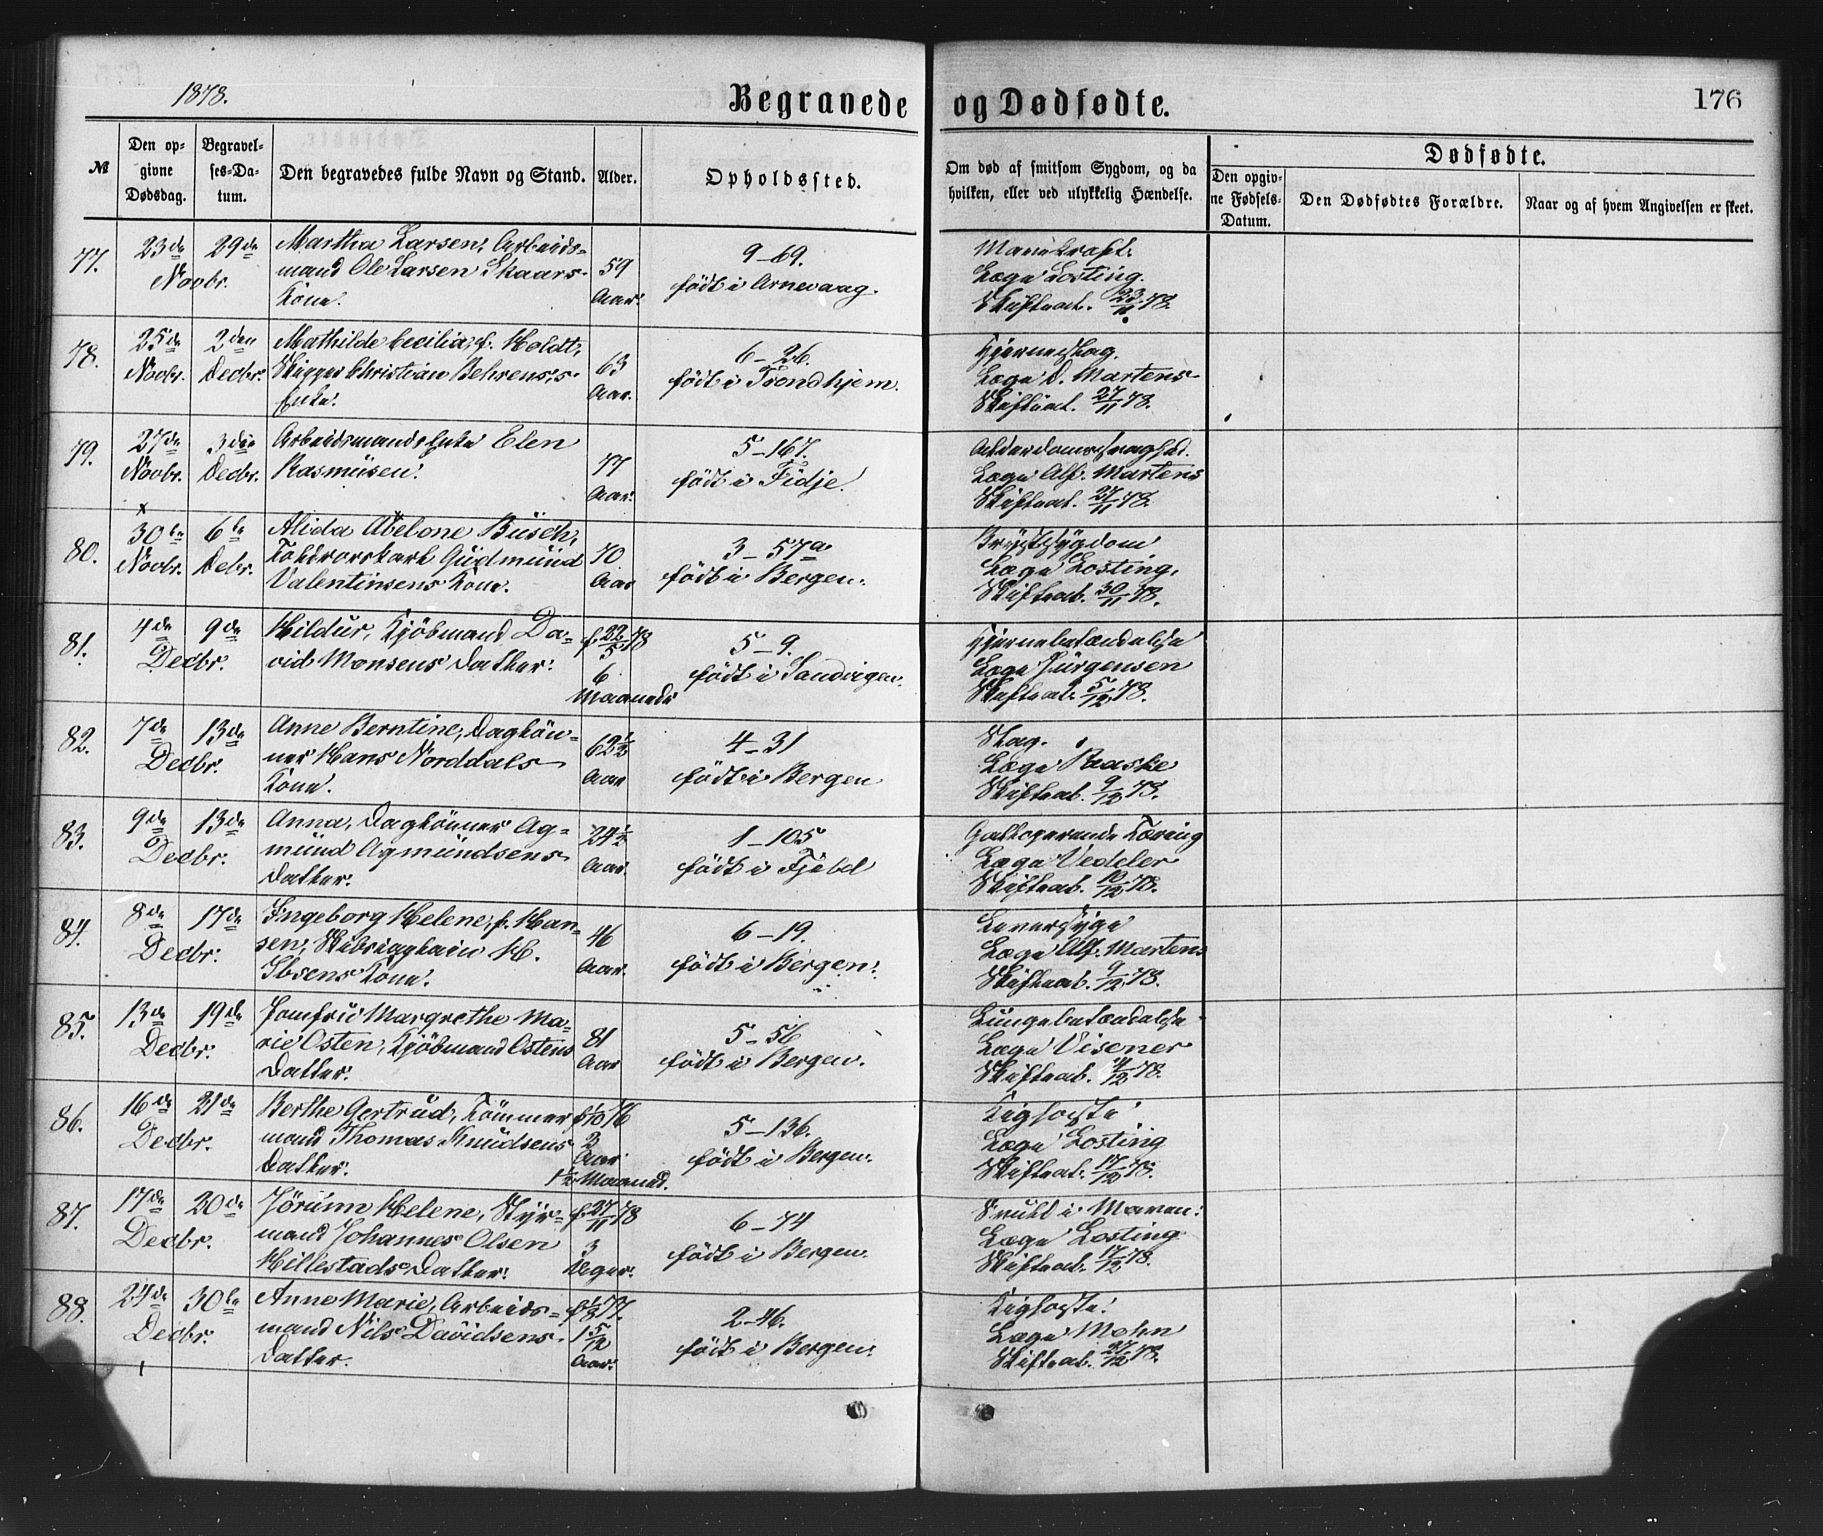 1878.
Begravede og Dødfødte.
176
№
Den opgivne Dødsdag.
Begravelses-Datum.
Den begravedes fulde Navn og Stand.
Alder.
Opholdssted.
Om død af smitsom Sygdom, og da hvilken, eller ved ulykkelig Hændelse.
Dødfødte.
Den opgivne Fødsels-Datum.
Den Dødfødtes Forældre.
Naar og af hvem Angivelsen er skeet.
77. 23de 29de Martha Larsen, Arbeids- 9–69. Marvekræft.
Novbr. mand Ole Larsen Skaars- 59 født i Arnevaag. Læge Losting.
Kone. Aar. Skifteat. 23/11 78.
78. 25de 2den Mathilde Cecilia, f. Holdt, 6–26. Hjerneslag.
Novbr. Decbr. Skipper Christian Behrens's 63 født i Trondhjem. Læge D. Martens
Enke. Aar. Skifteat. 27/11 78.
79. 27de 3die Arbeidsmands Enke Elen 5–167. Alderdomssvaghed.
Novbr. Decbr. Rasmüsen. 77 født i Fidje. Læge Alf. Martens
Aar. Skifteat. 27/11 78.
x
80. 30te 6te Alida Abelone Büsch, 3–57a Brystsygdom
Novbr. Debr. Toldrorskarl Gudmünd 70 født i Bergen. Læge Losting,
Valentinsens Kone. Aar Skifteat. 30/11 78.
81. 4de 9de Hildur, Kjöbmand Da- f. 22/5 78 5–9. Hjernebetændelse
Decbr. vid Monsens Datter. 6 født i Sandvigen. Læge Jürgensen
Maaneder Skifteat. 5/12 78.
82. 7de 13de Anne Berntine, Daglön- 4–31 Slag.
Decbr. ner Hans Norddals 62½ født i Bergen Læge Raaske
Kone. Aar Skifteat. 9/12 78.
83. 9de 13de Anna, Daglönner Ag- 24½ 1–105 Galloperende Tæring
Decbr. münd Agmündsens Aar. født i Fjeld Læge Vedeler
Datter. Skifteat. 10/12 78.
84. 8de 17de Ingeborg Helene, f. Han- 46 6–19. Leversyge
Decbr. sen, Skibskaptain H. Aar. født i Bergen. Læge Alf. Martens
Ibsens Kone. Skifteat. 9/12 78.
85. 13de 19de Jomfru Margrethe Ma- 81 5–56 Lungebetændelse
Decbr. rie Osten, Kjöbmand Ostens Aar født i Bergen. Læge Visener
Datter. Skifteat. 14/12 78.
86. 16de 21de Berthe Gertrud, Tömmer f. 1/10 76 5–136. Kighoste
Decbr. mand Thomas Knudsens 2 Aar født i Bergen. Læge Losting
Datter. 1½ Maaned. Skifteat. 17/12 78.
87. 17de 20de Jörünn Helene, Styr- f. 27/11 78 6–74 i Maven.
Decbr. mand Johannes Olsen 3 født i Bergen. Læge Losting
Hillestads Datter. Uger. Skifteat. 17/12 78.
88. 24de 30te Anne Marie, Arbeids- f. 1/8 77. 2–46. Kighoste.
Decbr. mand Nils Davidsens 1 5/12 født i Bergen. Læge Mohn
Datter. Aar. Skifteat. 27/12 78.